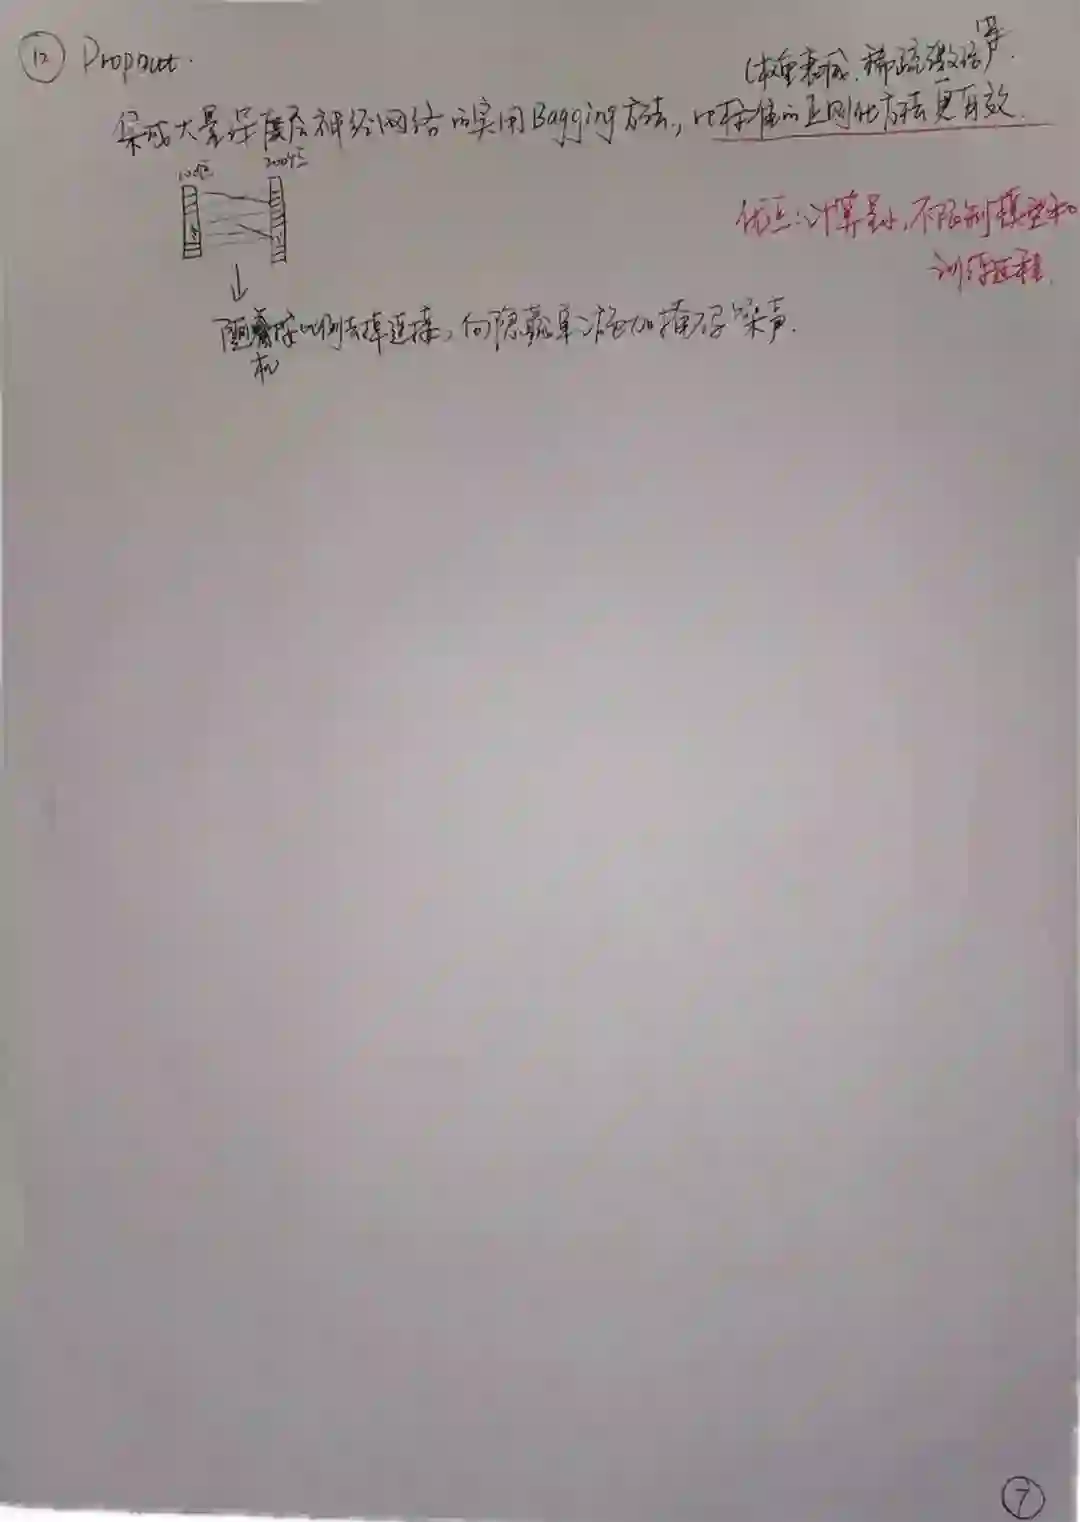 ⑫ Dropout.
(权重衰减、稀疏激活等).
集成大量深度层神经网络的实用Bagging方法，比标准的正则化方法更有效.
100个 200个
优点：计算量小，不限制模型和
训练过程.
↓
随机按比例去掉连接，向隐藏单元施加掩码噪声.
⑦